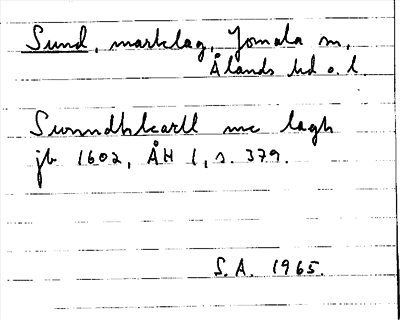 Sund, marklag, Jomala sn,
Ålands hd o. l.
Swnndhkarll mc lagh
jb 1602, ÅH 1, s. 379.
S.A. 1965.